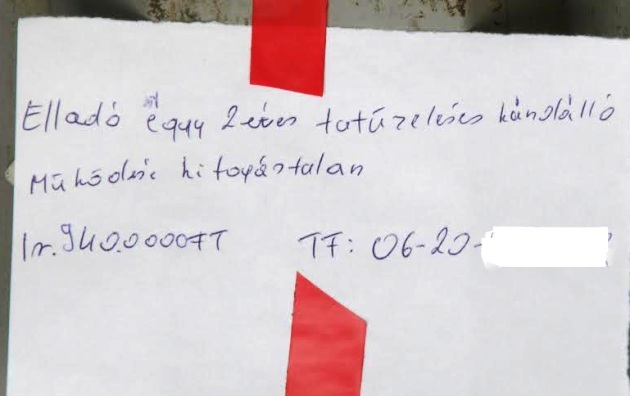 Elladó égyy 2 éves tatűzelésés kánolálló
Működésie kitoyástalan
Ir. 940.0000FT TF: 06-20-